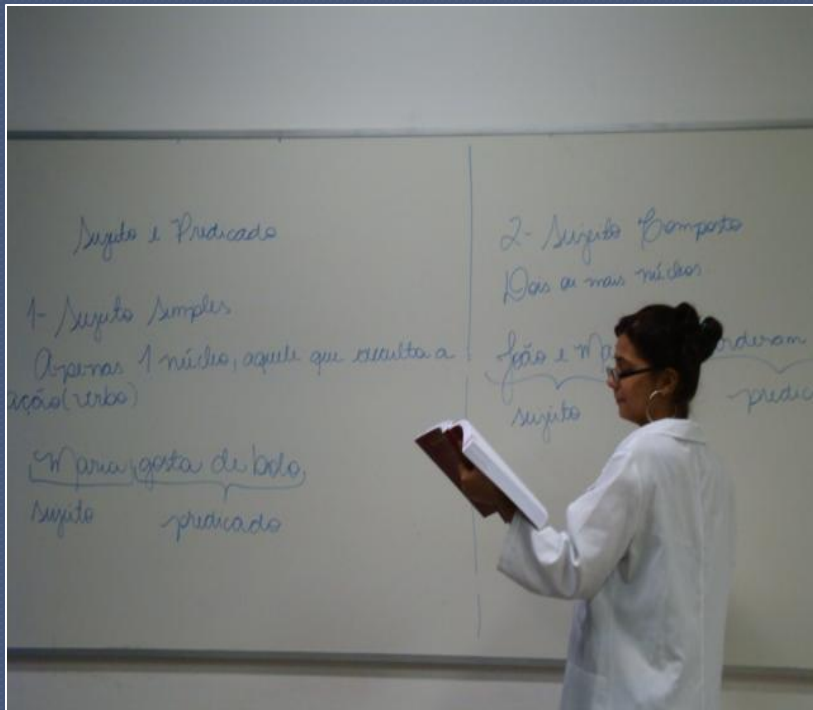 Sujeito e Predicado
1- Sujeito Simples
Apenas 1 núcleo, aquele que a
ação (verbo)
Maria gosta de bolo
sujeito predicado
2- Sujeito Composto
Dois ou mais núcleos
João e
sujeito